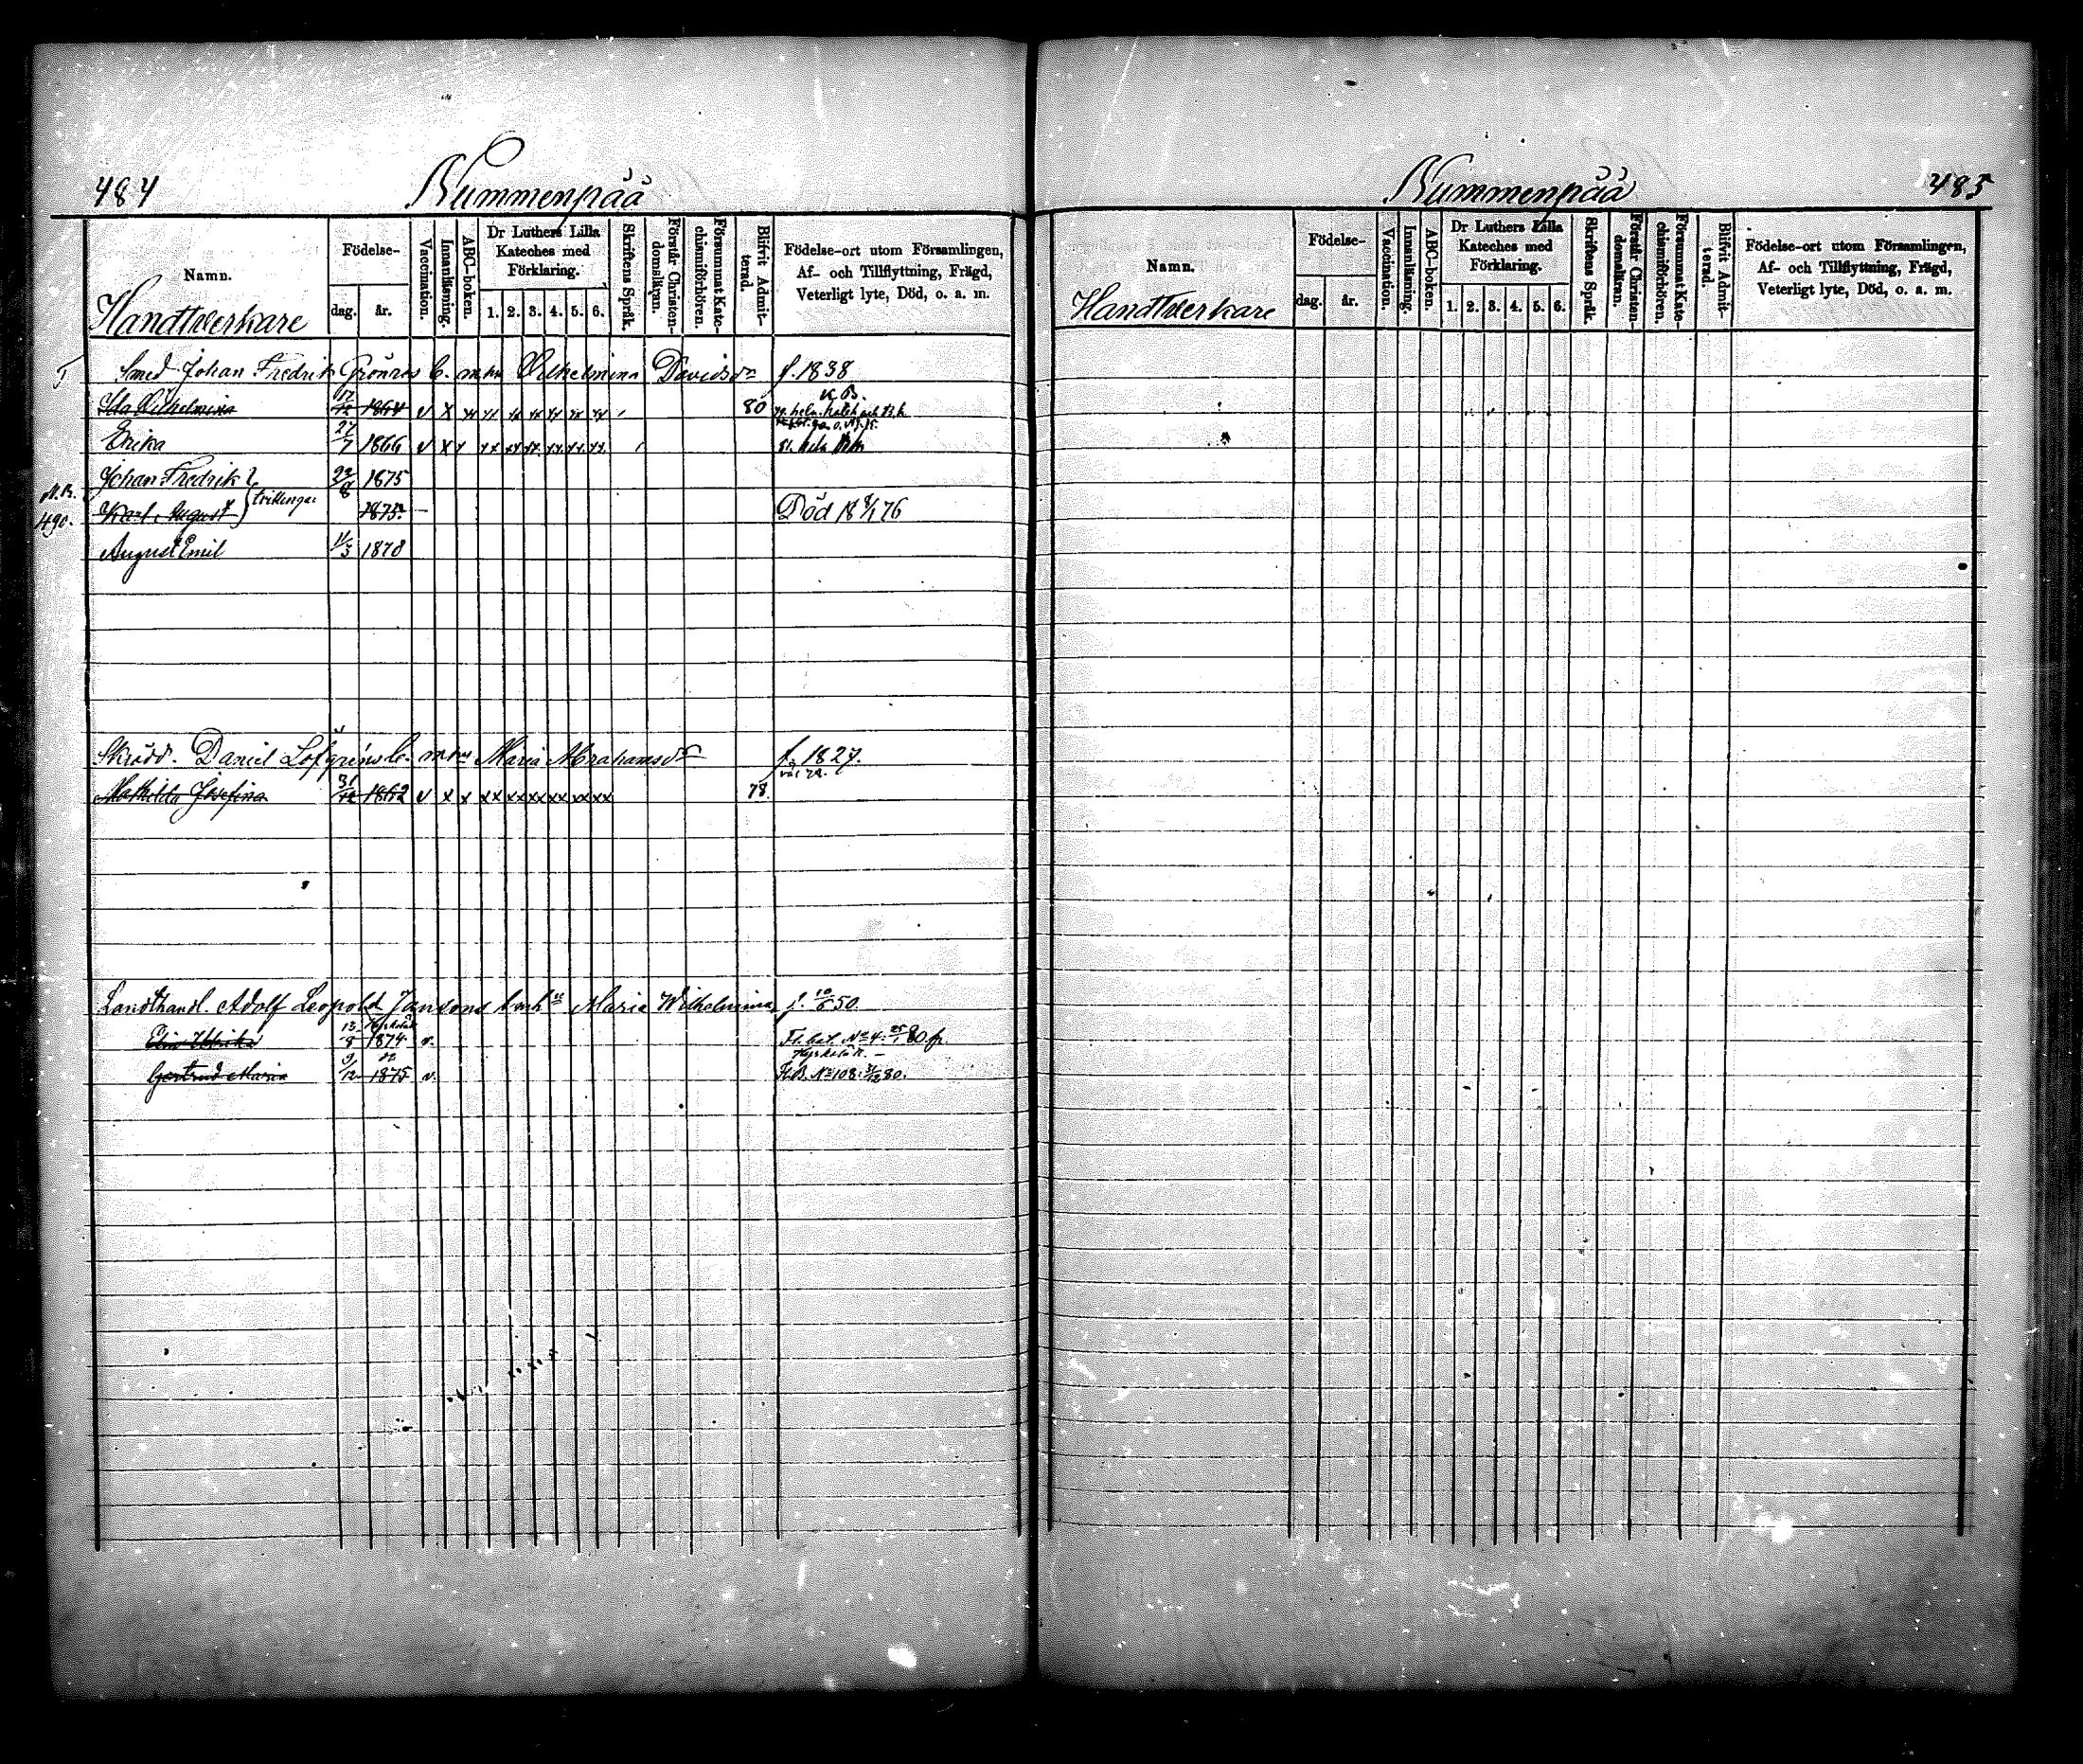 484 Nummenpää
Namn.
Födelse-
dag. år.
Vaccination.
Innanläsning.
ABC-boken.
Dr Luthers Lilla
Kateches med
Förklaring.
1. 2. 3. 4. 5. 6.
Skriftens Språk.
Förstår Christen-
domsläran.
Försummat Kate-
chismiförhören.
Blifvit Admit-
terad.
Födelse-ort utom Församlingen,
Af- och Tillflyttning, Frägd,
Veterligt lyte, Död, o. a. m.
Handtverkare
Smed Johan Fredrik Grönros b. m hu Vilhelmina Davidsdr f. 1838
Ida Vilhelmina 17/12 1864 v x 80
Erika 27/7 1866 v x
Johan Fredrik 22/8 1875
trillingar
N.B.
490.
Karl August 1875 Död 18 76
August Emil 11/3 1878
Skrädd. Daniel Löfgrens b. m hu Maria Abrahamsdr f. 1827.
Mathilda Josefina 31/12 1862 v x x xx xx xx xx xx xx 78.
Landthandl. Adolf Leopold Jansons b m h Maria Wilhelmina f. 10/6 50.
13/8 1874 v. No 4. 80
Gertrud Maria 9/12 1875 v. No 108. 80.
Nummenpää 485
Namn.
Födelse-
dag. år.
Vaccination.
Innanläsning.
ABC-boken.
Dr Luthers Lilla
Kateches med
Förklaring.
1. 2. 3. 4. 5. 6.
Skriftens Språk.
Förstår Christen-
domsläran.
Försummat Kate-
chismiförhören.
Blifvit Admit-
terad.
Födelse-ort utom Församlingen,
Af- och Tillflyttning, Frägd,
Veterligt lyte, Död, o. a. m.
Handtverkare